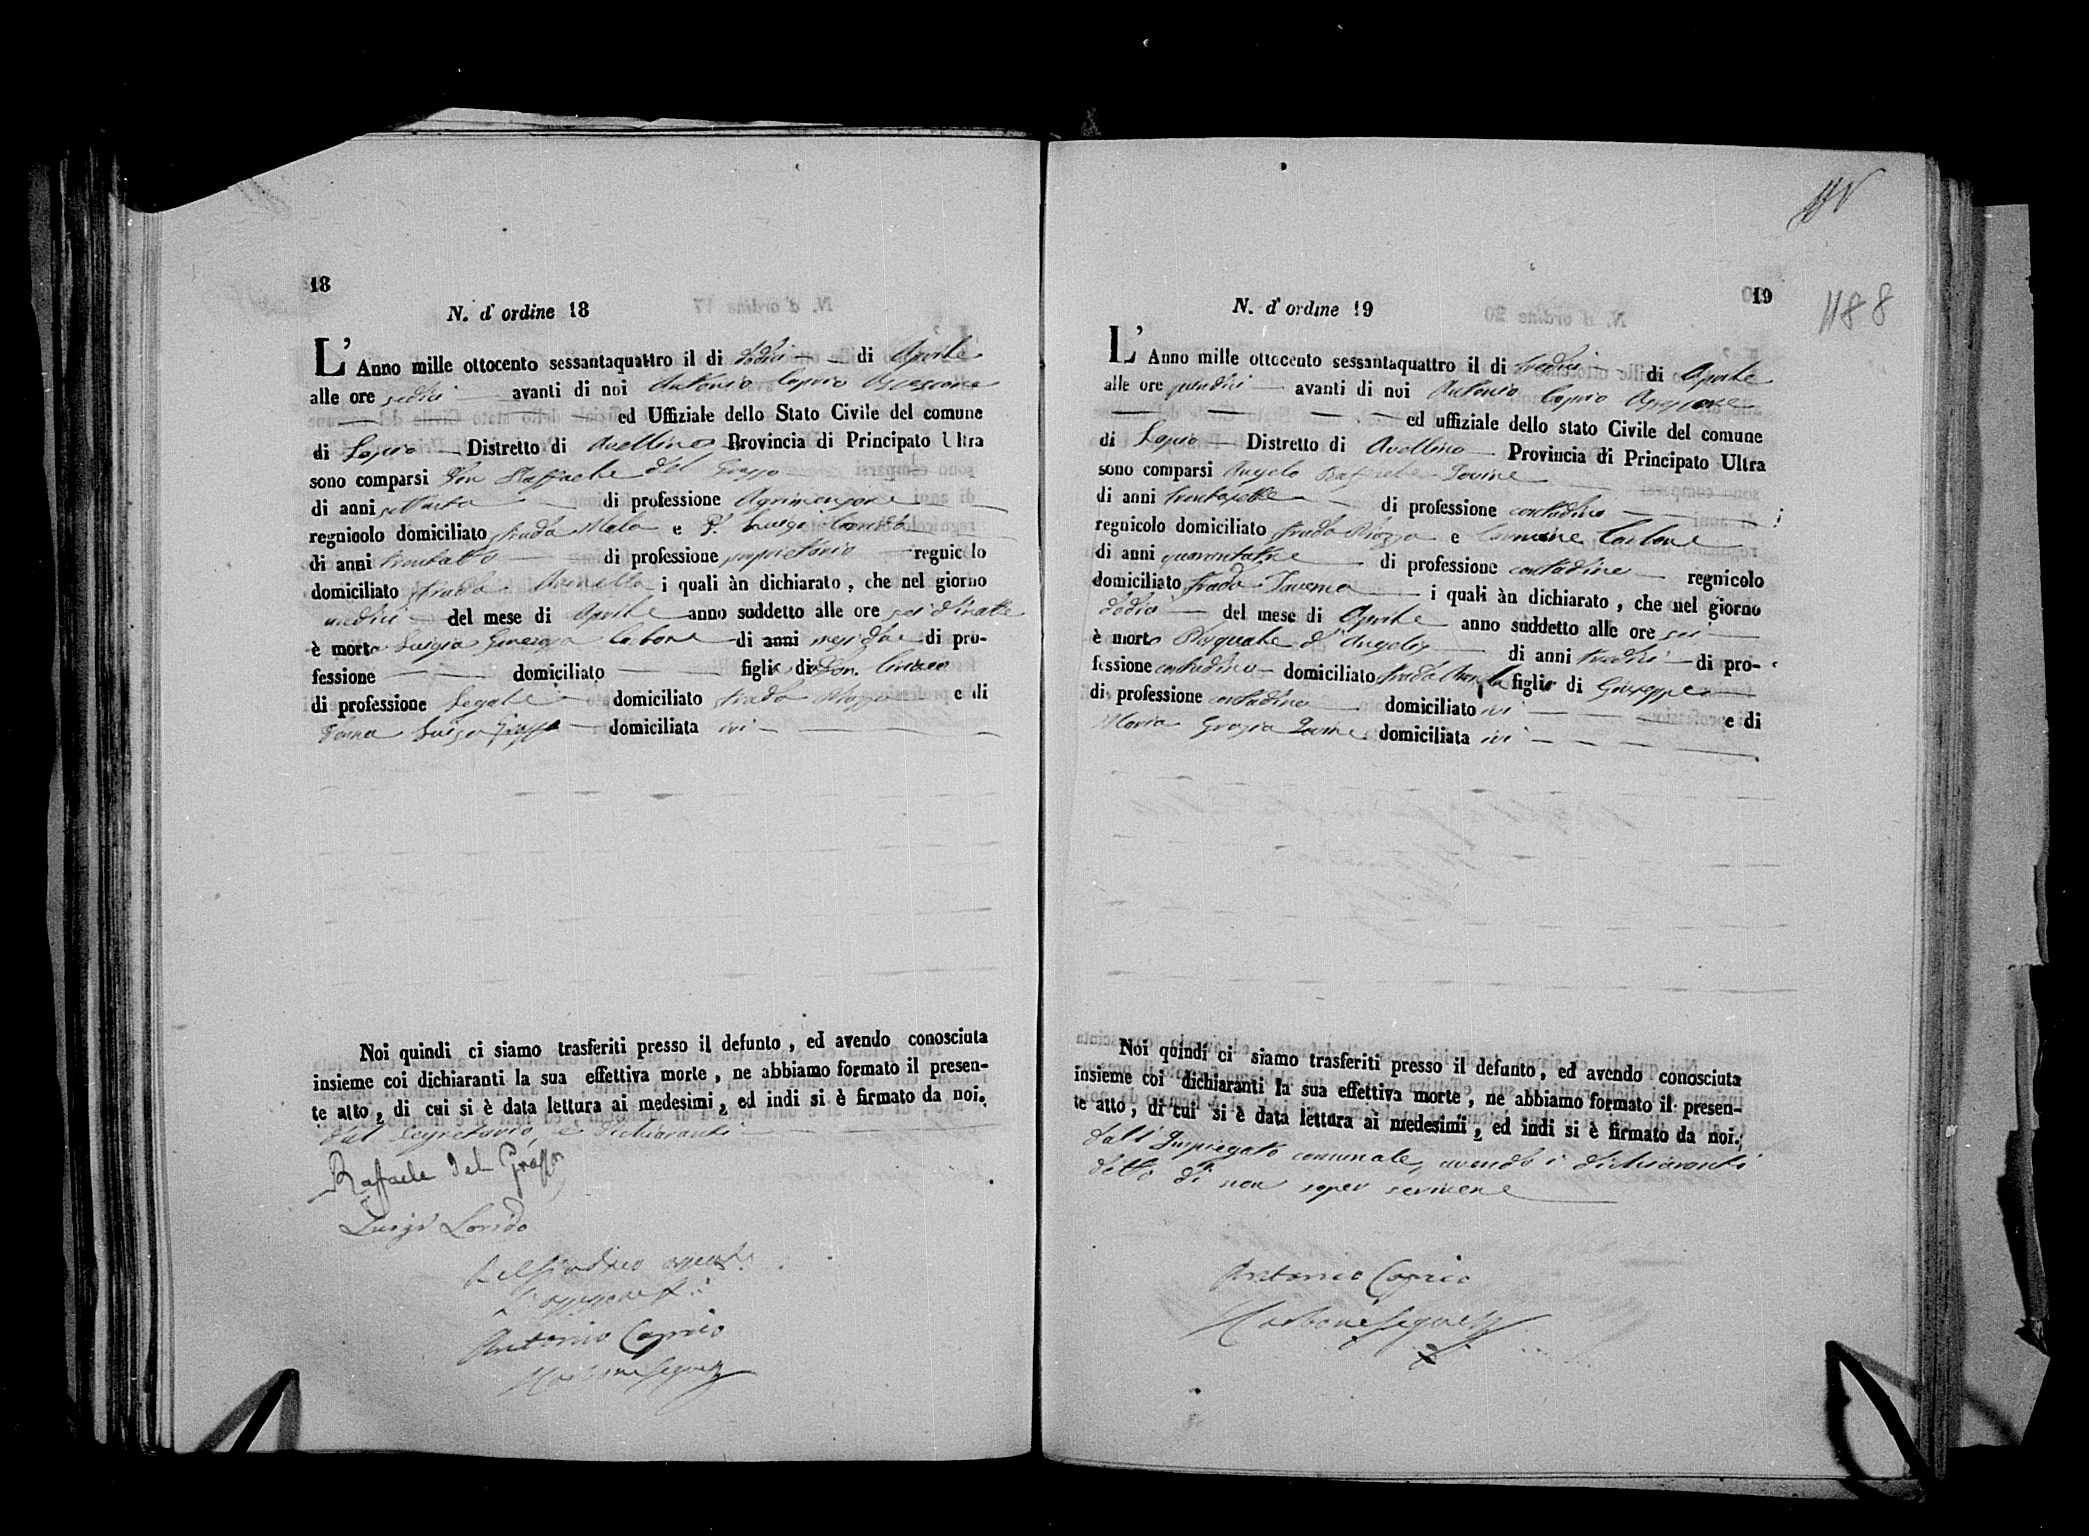 18
N. d' ordine 18
L' Anno mille ottocento sessantaquattro il di dodici di Aprile
alle ore sedici avanti di noi Antonio Caprio Assessore
ed Uffiziale dello Stato Civile del comune
di Lapio Distretto di Avellino Provincia di Principato Ultra
sono comparsi Don Raffaele del Grosso
di anni settanta di professione Agrimensore
regnicolo domiciliato strada Mela e D. Luigi
di anni trentotto di professione proprietario regnicolo
domiciliato strada i quali àn dichiarato, che nel giorno
undici del mese di Aprile anno suddetto alle ore sei d'inotte
è morta Luigia Carbone di anni mesi due di pro-
fessione domiciliato figlia di Don Ciriaco
di professione Legale domiciliato strada Piazza e di
Donna Luigia domiciliata ivi
Noi quindi ci siamo trasferiti presso il defunto, ed avendo conosciuta
insieme coi dichiaranti la sua effettiva morte, ne abbiamo formato il presen-
te atto, di cui si è data lettura ai medesimi, ed indi si è firmato da noi.
dal Segretario, e dichiaranti
Raffaele del Grosso
Luigi
Antonio Caprio
Carbone
19
1188
N. d' ordine 19
L' Anno mille ottocento sessantaquattro il di tredici di Aprile
alle ore quindici avanti di noi Antonio Caprio Assessore
ed uffiziale dello stato Civile del comune
di Lapio Distretto di Avellino Provincia di Principato Ultra
sono comparsi Angelo Raffaele Iovine
di anni trentasette di professione contadino
regnicolo domiciliato strada Piazza e Carmine Carbone
di anni quarantatre di professione contadino regnicolo
domiciliato strada Taverna i quali àn dichiarato, che nel giorno
dodici del mese di Aprile anno suddetto alle ore sei
è morto Pasquale d'Angelis di anni tredici di pro-
fessione contadino domiciliato strada figlio di Giuseppe
di professione contadino domiciliato ivi e di
Maria Grazia Iovine domiciliata ivi
Noi quindi ci siamo trasferiti presso il defunto, ed avendo conosciuta
insieme coi dichiaranti la sua effettiva morte, ne abbiamo formato il presen-
te atto, di cui si è data lettura ai medesimi, ed indi si è firmato da noi.
dall'Impiegato comunale, avendo i dichiaranti
detto di non saper scrivere
Antonio Caprio
Carbone